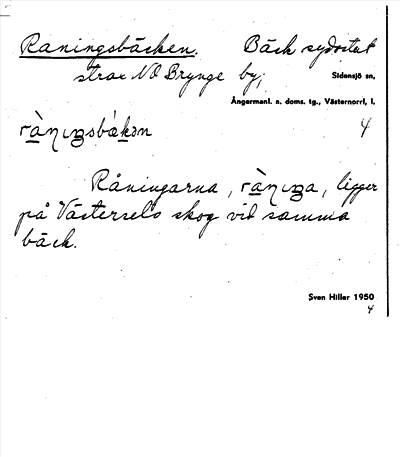 Raningsbäcken. Bäck sydostut
strax NO Brynge by; Sidensjö sn,
Ångermanl. n. doms. tg., Västernorrl, l.
4
Råningarna, ligger
på Västersels skog vid samma
bäck.
Sven Hiller 1950
4